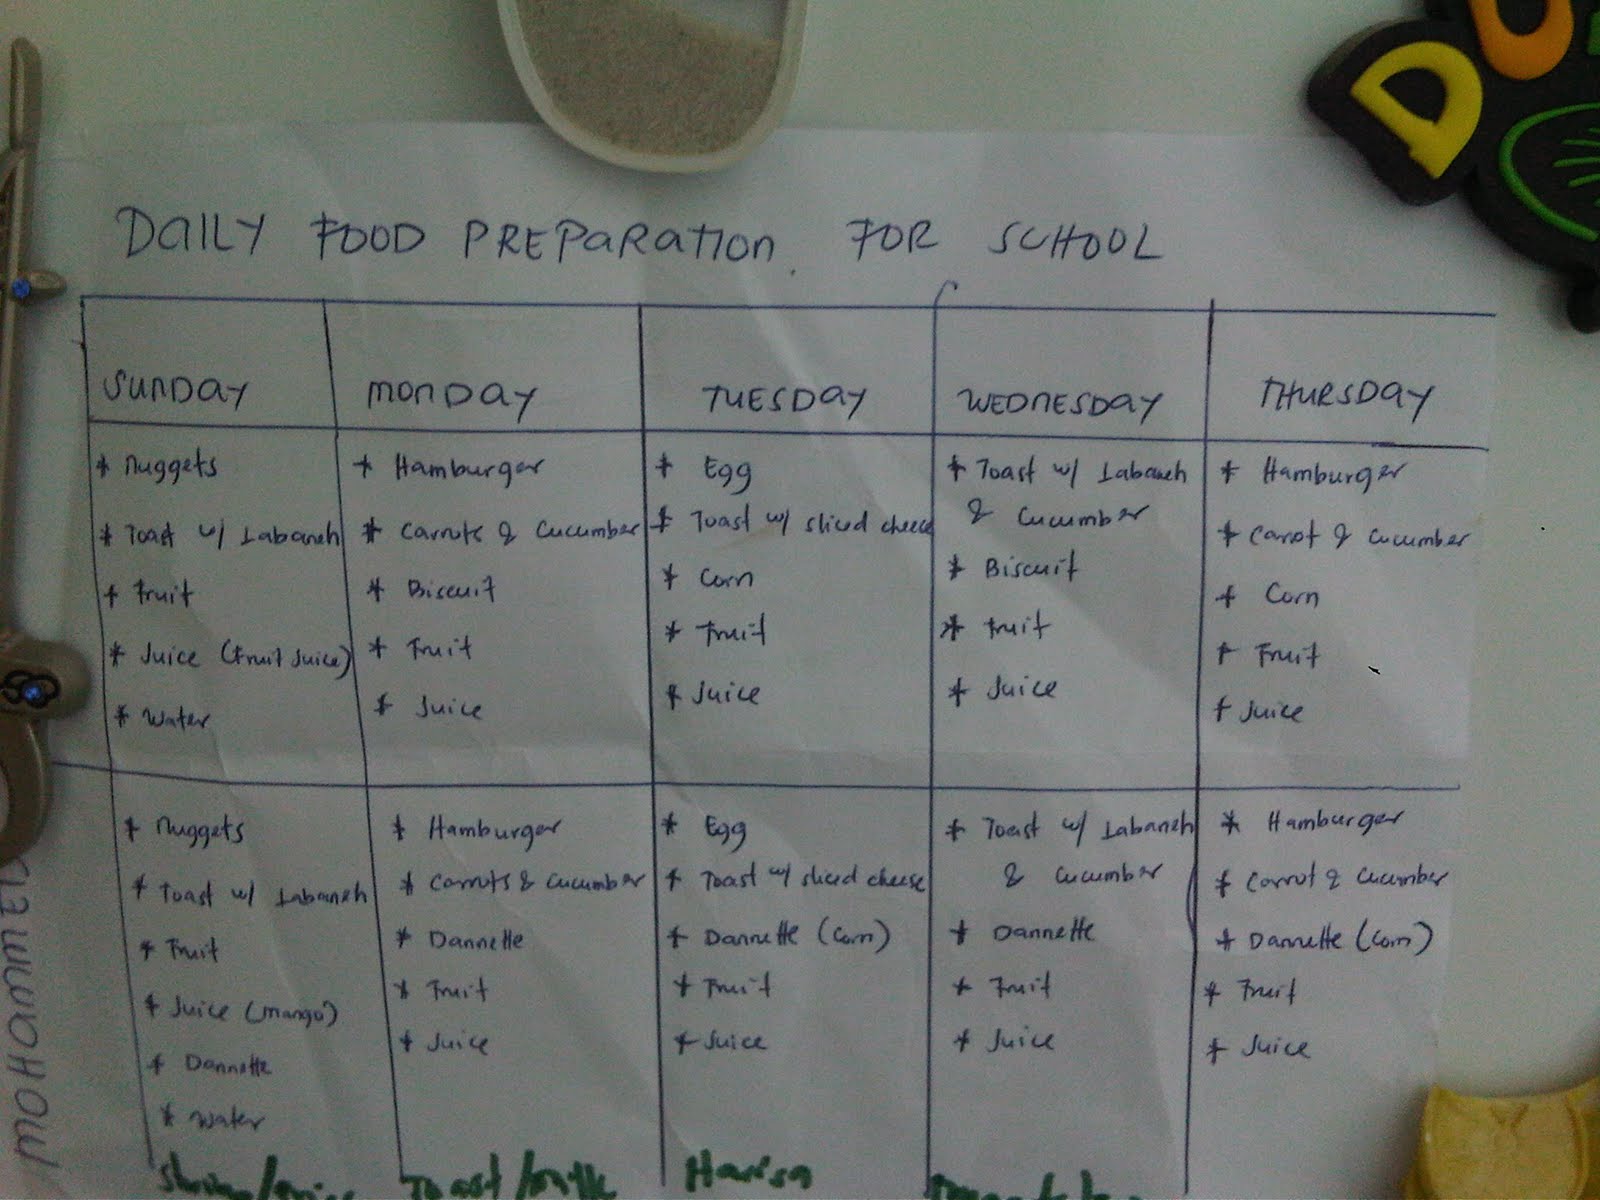 DAILY FOOD PREPARATION FOR SCHOOL
SUNDAY
* Nuggets
* Toast w/ Labaneh
* Fruit
* Juice (Fruit Juice)
* Water
MONDAY
* Hamburger
* Carrots & Cucumber
* Biscuit
* Fruit
* Juice
TUESDAY
* Egg
* Toast w/ sliced cheese
* Corn
* Fruit
* Juice
WEDNESDAY
* Toast w/ Labaneh
& Cucumber
* Biscuit
* Fruit
* Juice
THURSDAY
* Hamburger
* Carrot & Cucumber
* Corn
* Fruit
* Juice
* Nuggets
* Toast w/ Labaneh
* Fruit
* Juice (Mango)
* Dannette
* Water
* Hamburger
* Carrots & Cucumber
* Dannette
* Fruit
* Juice
* Egg
* Toast w/ sliced cheese
* Dannette (Corn)
* Fruit
* Juice
* Toast w/ Labaneh
& Cucumber
* Dannette
* Fruit
* Juice
* Hamburger
* Carrot & Cucumber
* Dannette (Corn)
* Fruit
* Juice
Toast/milk
Harisa
MOHAMMED